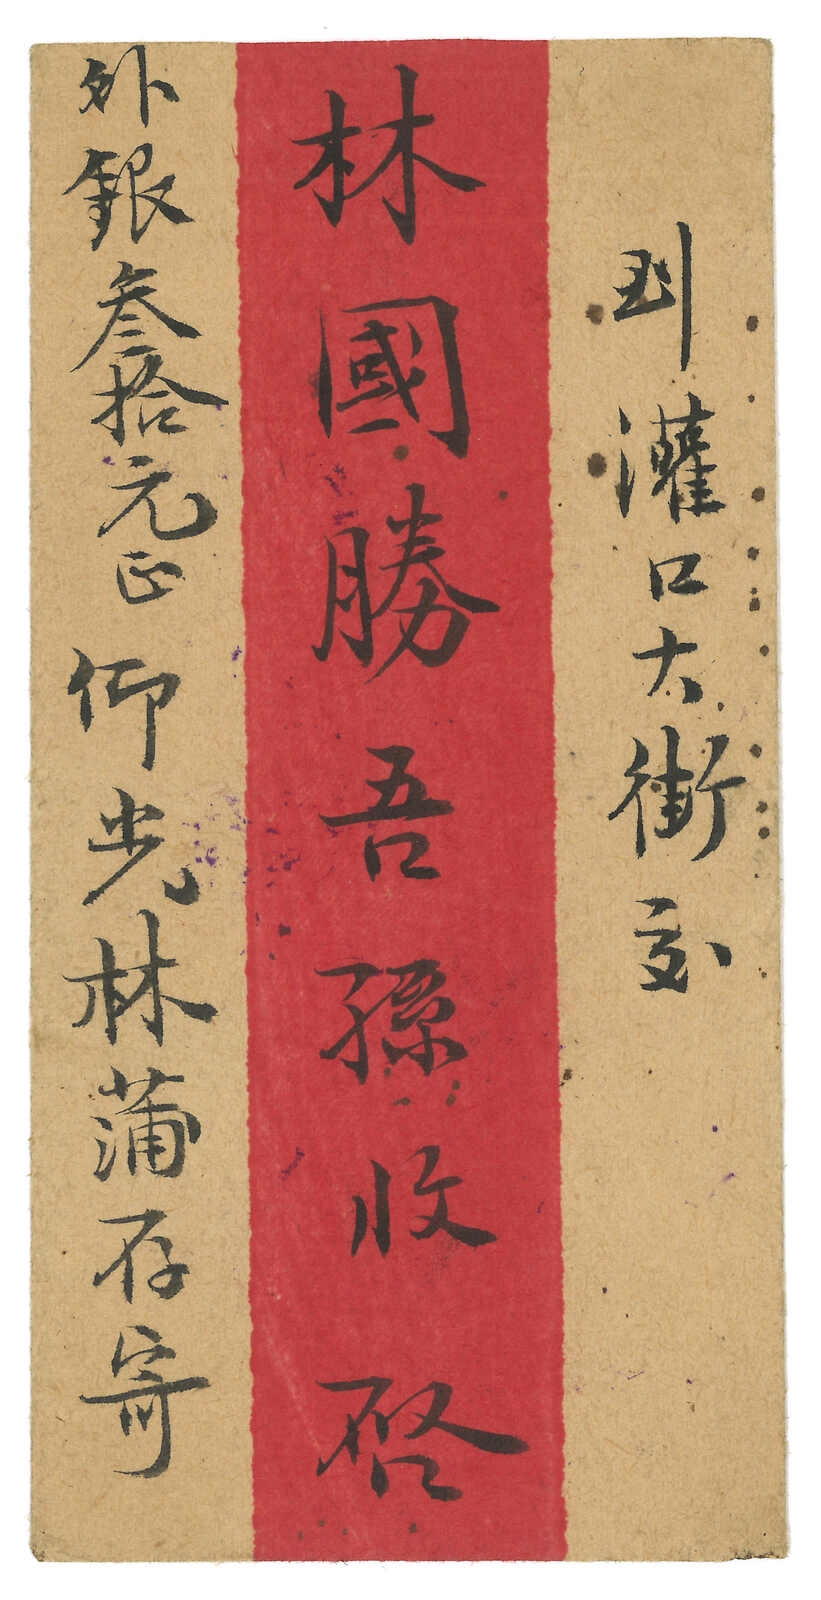 到灌口大街交
林國勝吾孫收啓
外銀叁拾元正 仰光林蒲存寄